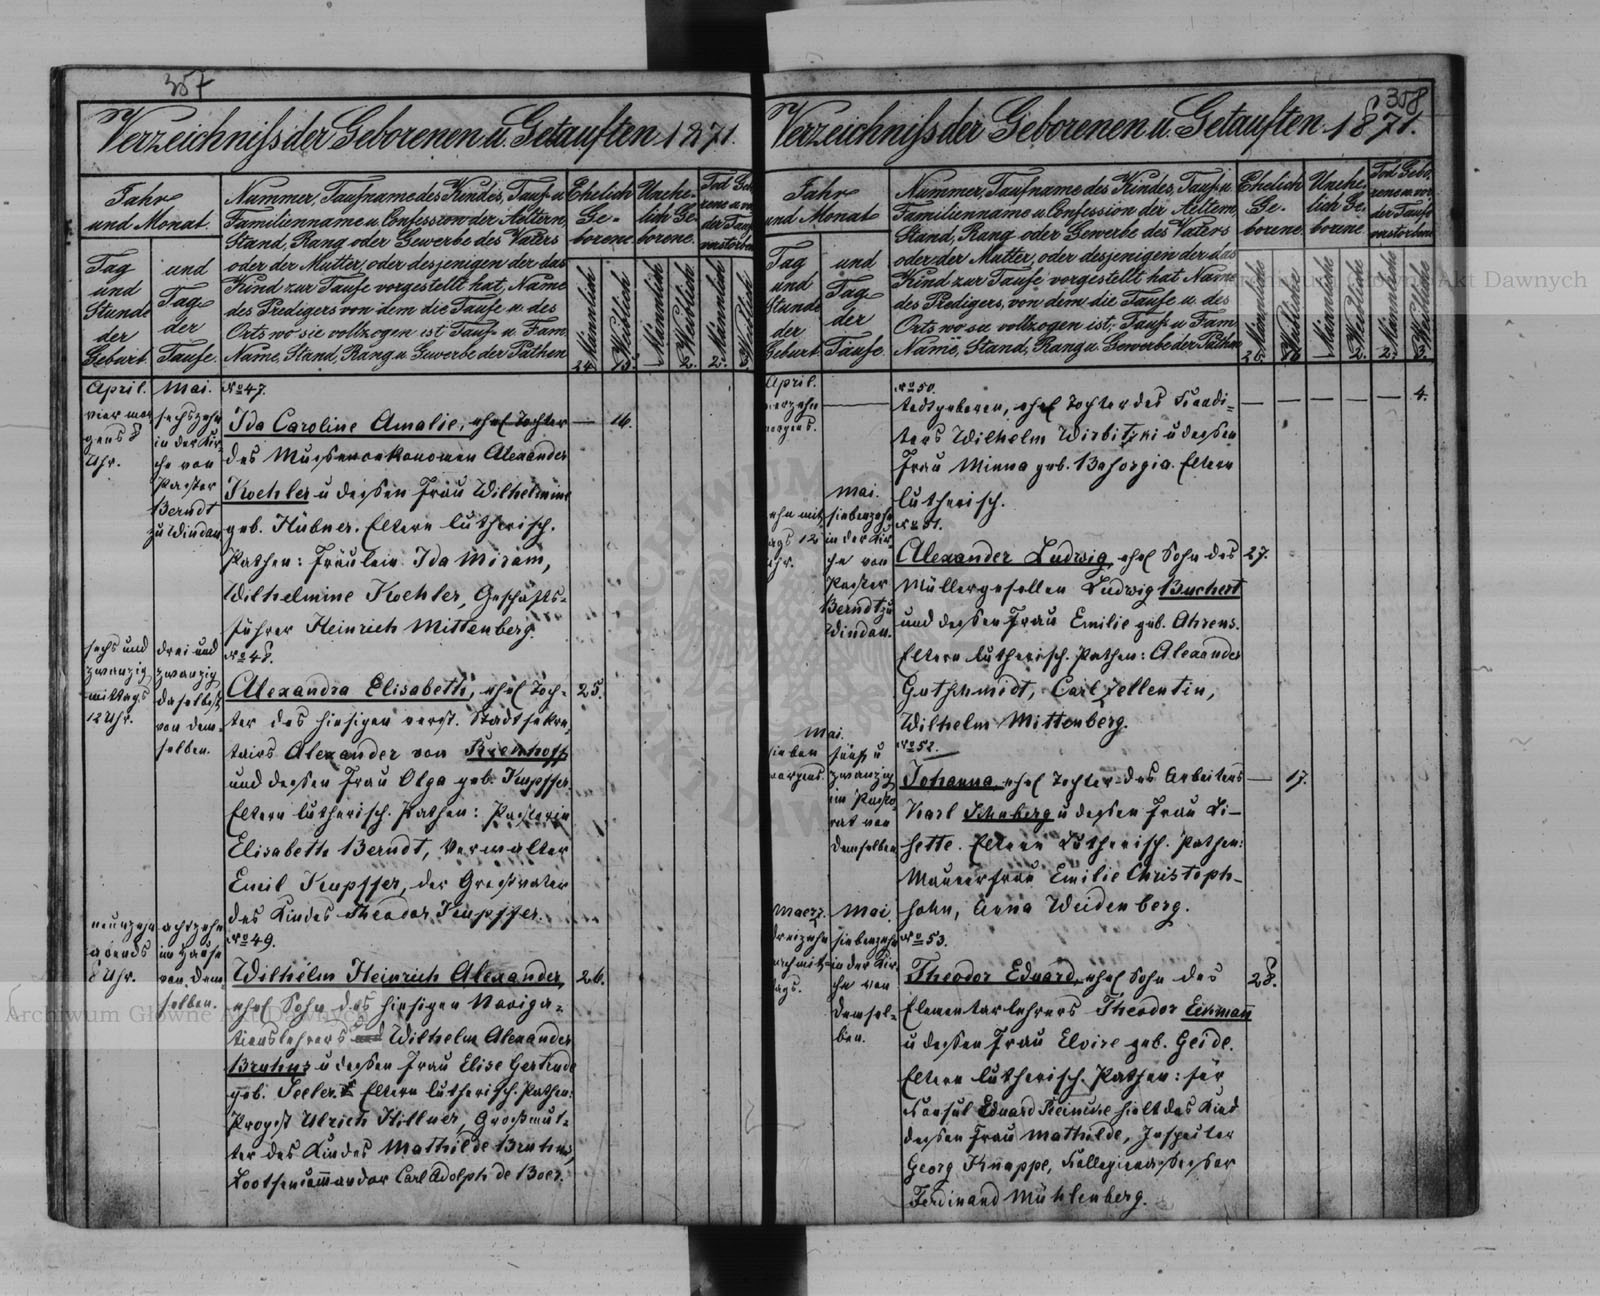 357
Verzeichniß der Geborenen u. Getauften 1871.
Jahr
und Monat.
Tag
und
Stunde
der
Geburt.
und
Tag
der
Taufe.
Nummer, Taufname des Kindes, Tauf- u.
Familienname u. Confession der Aeltern,
Stand, Rang oder Gewerbe des Vaters
oder der Mutter, oder desjenigen der das
Kind zur Taufe vorgestellt hat, Name
des Predigers von dem die Taufe u. des
Orts wo sie vollzogen ist, Tauf- u. Fam.
Name, Stand, Rang u. Gewerbe der Pathen
Ehelich
Ge-
borene
Unehe-
lich Ge-
borene.
Männlich
Weiblich
Männlich
Weiblich
Männlich
Weiblich
24. 15. 2. 2. 3.
April.
vier mor
gens 8
Uhr.
Mai.
sechszehn
in der Kir-
che von
Pastor
Berndt
zu Windau
No 47.
Ida Caroline Amalie, ehel Tochter — 16.
des Mussenoekonomen Alexander
Koehler u dessen Frau Wilhelmine
geb. Hübner. Eltern lutherisch.
Pathen: Fräulein Ida Miram,
Wilhelmine Koehler, Geschäfts-
führer Heinrich Mittenberg.
sechs und
zwanzig
mittags
12 Uhr.
drei und
zwanzig
daselbst
von dem-
selben.
No 48.
Alexandra Elisabeth, ehel Toch- 25.
ter des hiesigen verst. Stadtsekre-
tairs Alexander von
und dessen Frau Olga geb. Kupffer.
Eltern lutherisch. Pathen: Pastorin
Elisabeth Berndt, Verwalter
Emil Kupffer, der Großvater
des Kindes Theodor Kupffer.
neunzehn
abends
Uhr.
achtzehn
im Hause
von dem
selben.
No 49.
Wilhelm Heinrich Alexander, 26.
ehel Sohn des hiesigen Naviga-
tionslehrers Wilhelm Alexander
Bruhns u dessen Frau Elise Gertrude
geb. Seeler. Eltern lutherisch. Pathen:
Propst Ulrich Hillner, Großmut-
ter des Kindes Mathilde Bruhns,
Lootsencommandor Carl Adolph de Boer.
358
Verzeichniß der Geborenen u. Getauften 1871.
Jahr
und Monat
Tag
und
Stunde
der
Geburt.
und
Tag
der
Taufe.
Nummer, Taufname des Kindes, Tauf- u.
Familienname u. Confession der Aeltern,
Stand, Rang oder Gewerbe des Vaters
oder der Mutter, oder desjenigen der das
Kind zur Taufe vorgestellt hat, Name
des Predigers, von dem die Taufe u. des
Orts wo sie vollzogen ist, Tauf- u. Fam.
Name, Stand, Rang u. Gewerbe der Pathen
Ehelich
Ge-
borene
Unehe-
lich Ge-
borene.
Tod Gebo-
rene u. vor
der Taufe
verstorben
Männliche
Weibliche
Männliche
Weibliche
Männliche
Weibliche
26. 16. 2. 2. 3.
April.
vierzehn
morgens.
No 50.
todtgeboren, ehel Tochter des — — — — — 4.
Wilhelm Wirbitzki u dessen
Frau Minna geb. Eltern
lutherisch.
mittags 12
Uhr.
Mai.
siebenzehn
in der Kir
che von
Pastor
Berndt zu
Windau.
No 51.
Alexander Ludwig, ehel Sohn des 27.
Müllergesellen Ludwig Buchert
und dessen Frau Emilie geb. Ahrens.
Eltern lutherisch. Pathen: Alexander
Gutschmidt, Carl Zellentin,
Wilhelm Mittenberg.
Mai.
sieben
morgens.
fünf u
zwanzig
im Pasto-
rat von
demselben
No 52.
Johanna, ehel Tochter des Arbeiters — 17.
Karl u dessen Frau Li-
sette. Eltern Lutherisch. Pathen:
Maurerfrau Emilie Christoph-
sohn, Anna Weidenberg.
Maerz.
dreizehn
nachmit-
tags.
Mai.
siebenzehn
in der Kir
che von
demsel-
ben.
No 53.
Theodor Eduard, ehel Sohn des 28.
Elementarlehrers Theodor Eckmann
u dessen Frau Elvire geb. Geide.
Eltern lutherisch. Pathen: für
Consul Eduard hielt das Kind
dessen Frau Mathilde, Inspector
Georg Knappe, Kollegienassessor
Ferdinand Mühlenberg.
Archiwum Główne Akt Dawnych
Archiwum Główne Akt Dawnych